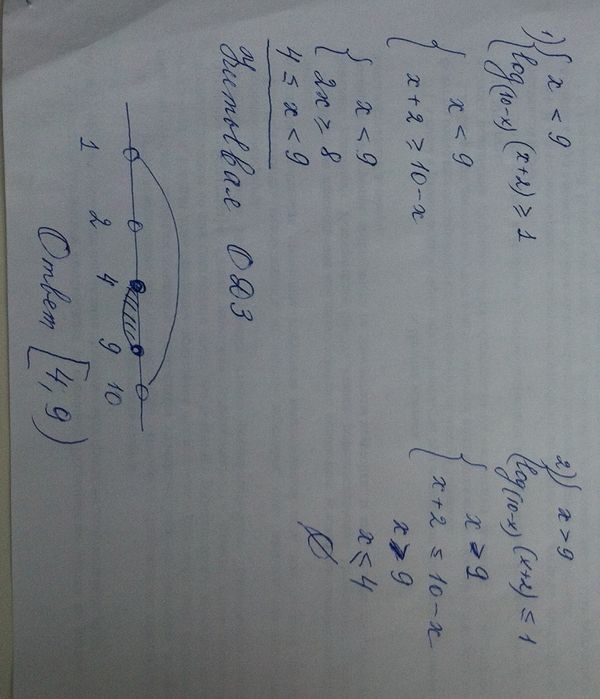 1) { x < 9
log(10-x) (x+2) ≥ 1
{ x < 9
x+2 ≥ 10-x
{ x < 9
2x ≥ 8
4 ≤ x < 9
Учитывая ОДЗ
1 2 4 9 10
Ответ [4, 9)
2) { x > 9
log(10-x) (x+2) ≤ 1
{ x > 9
x+2 ≤ 10-x
x > 9
x ≤ 4
∅